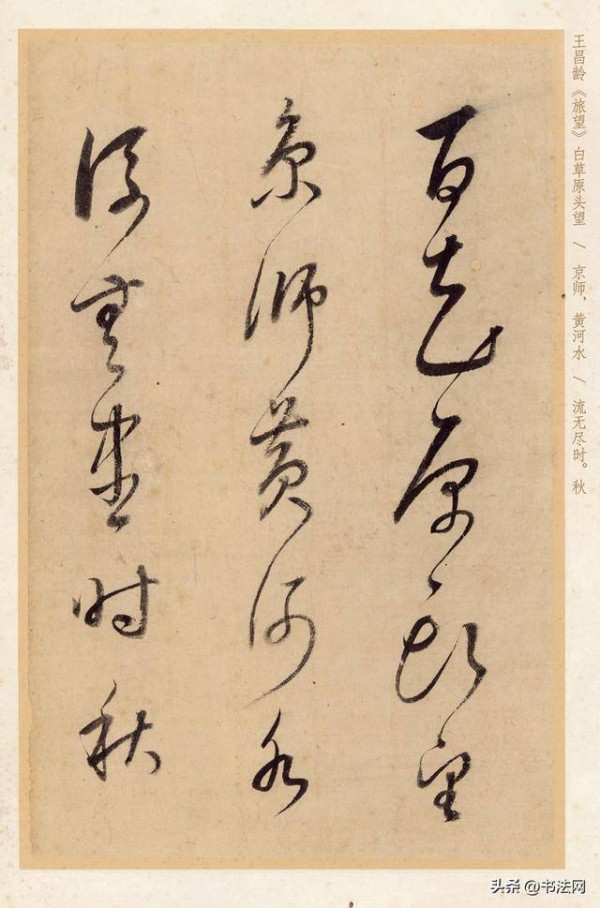 百花原头望
京师黄河水
流无尽时秋
王昌龄《旅望》白草原头望 / 京师，黄河水 / 流无尽时。秋
头条 @书法网